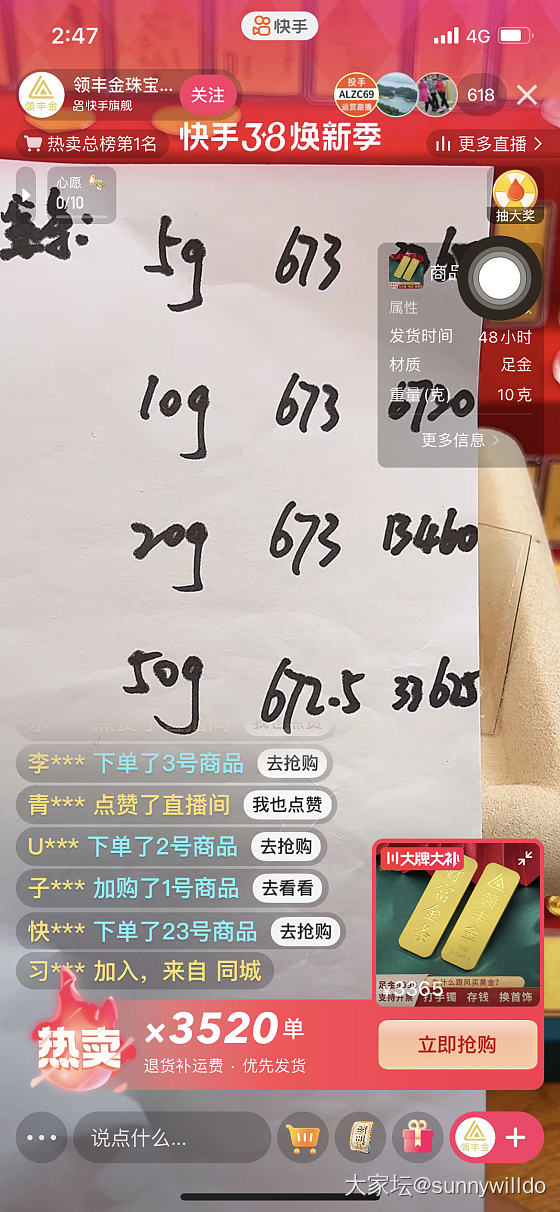 2:47
快手
4G
领丰金珠宝...
快手旗舰
关注
领丰金
投手
ALZC69
运营跟播
618
热卖总榜第1名
快手38焕新季
更多直播
心愿
0/10
抽大奖
5g 673
商品
属性
发货时间 48小时
材质 足金
重量(克) 10克
10g 673 6730
更多信息
20g 673 13460
50g 672.5 33625
李*** 下单了3号商品 去抢购
青*** 点赞了直播间 我也点赞
U*** 下单了2号商品 去抢购
子*** 加购了1号商品 去看看
快*** 下单了23号商品 去抢购
习*** 加入，来自 同城
大牌大补
财富金条
领丰金
为什么跟风买黄金?
¥3365
支持开票 打手镯 存钱 换首饰
热卖
×3520单
退货补运费 · 优先发货
立即抢购
说点什么...
领丰金
大家坛@sunnywilldo